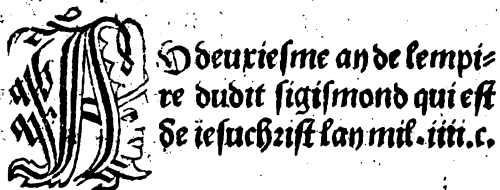 AU deuxiesme an de lempi-
re dudit sigismond qui est
de iesuchrist lan mil.iiii.c.